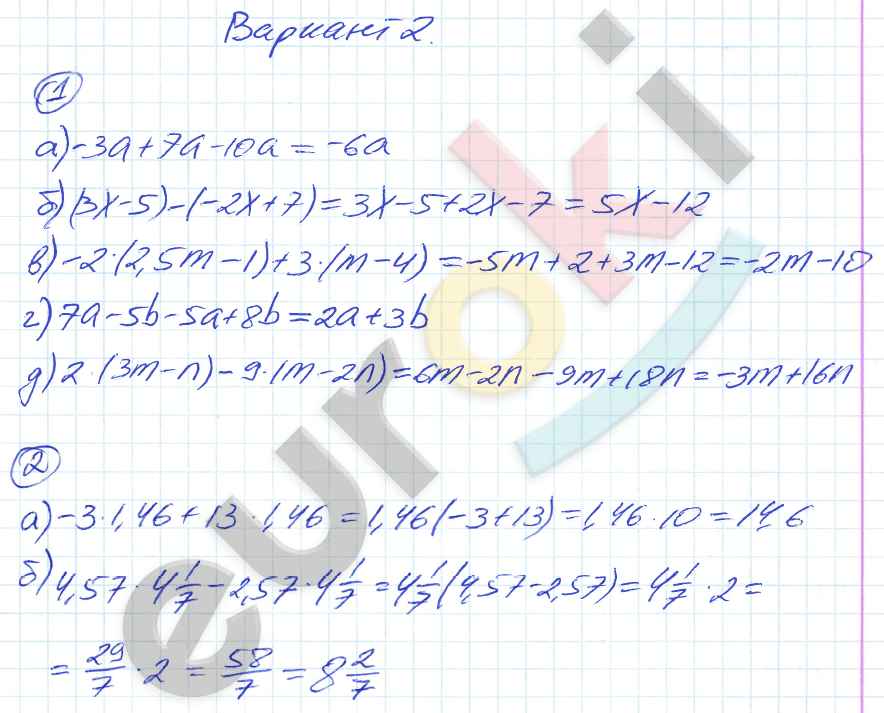 Вариант 2.
1
а) -3a+7a-10a=-6a
б) (3x-5)-(-2x+7)=3x-5+2x-7=5x-12
в) -2·(2,5m-1)+3·(m-4)=-5m+2+3m-12=-2m-10
г) 7a-5b-5a+8b=2a+3b
д) 2·(3m-n)-9·(m-2n)=6m-2n-9m+18n=-3m+16n
2
а) -3·1,46+13·1,46=1,46(-3+13)=1,46·10=14,6
б) 4,57·4 1/7-2,57·4 1/7=4 1/7(4,57-2,57)=4 1/7·2=
= 29/7·2=58/7=8 2/7
euroki